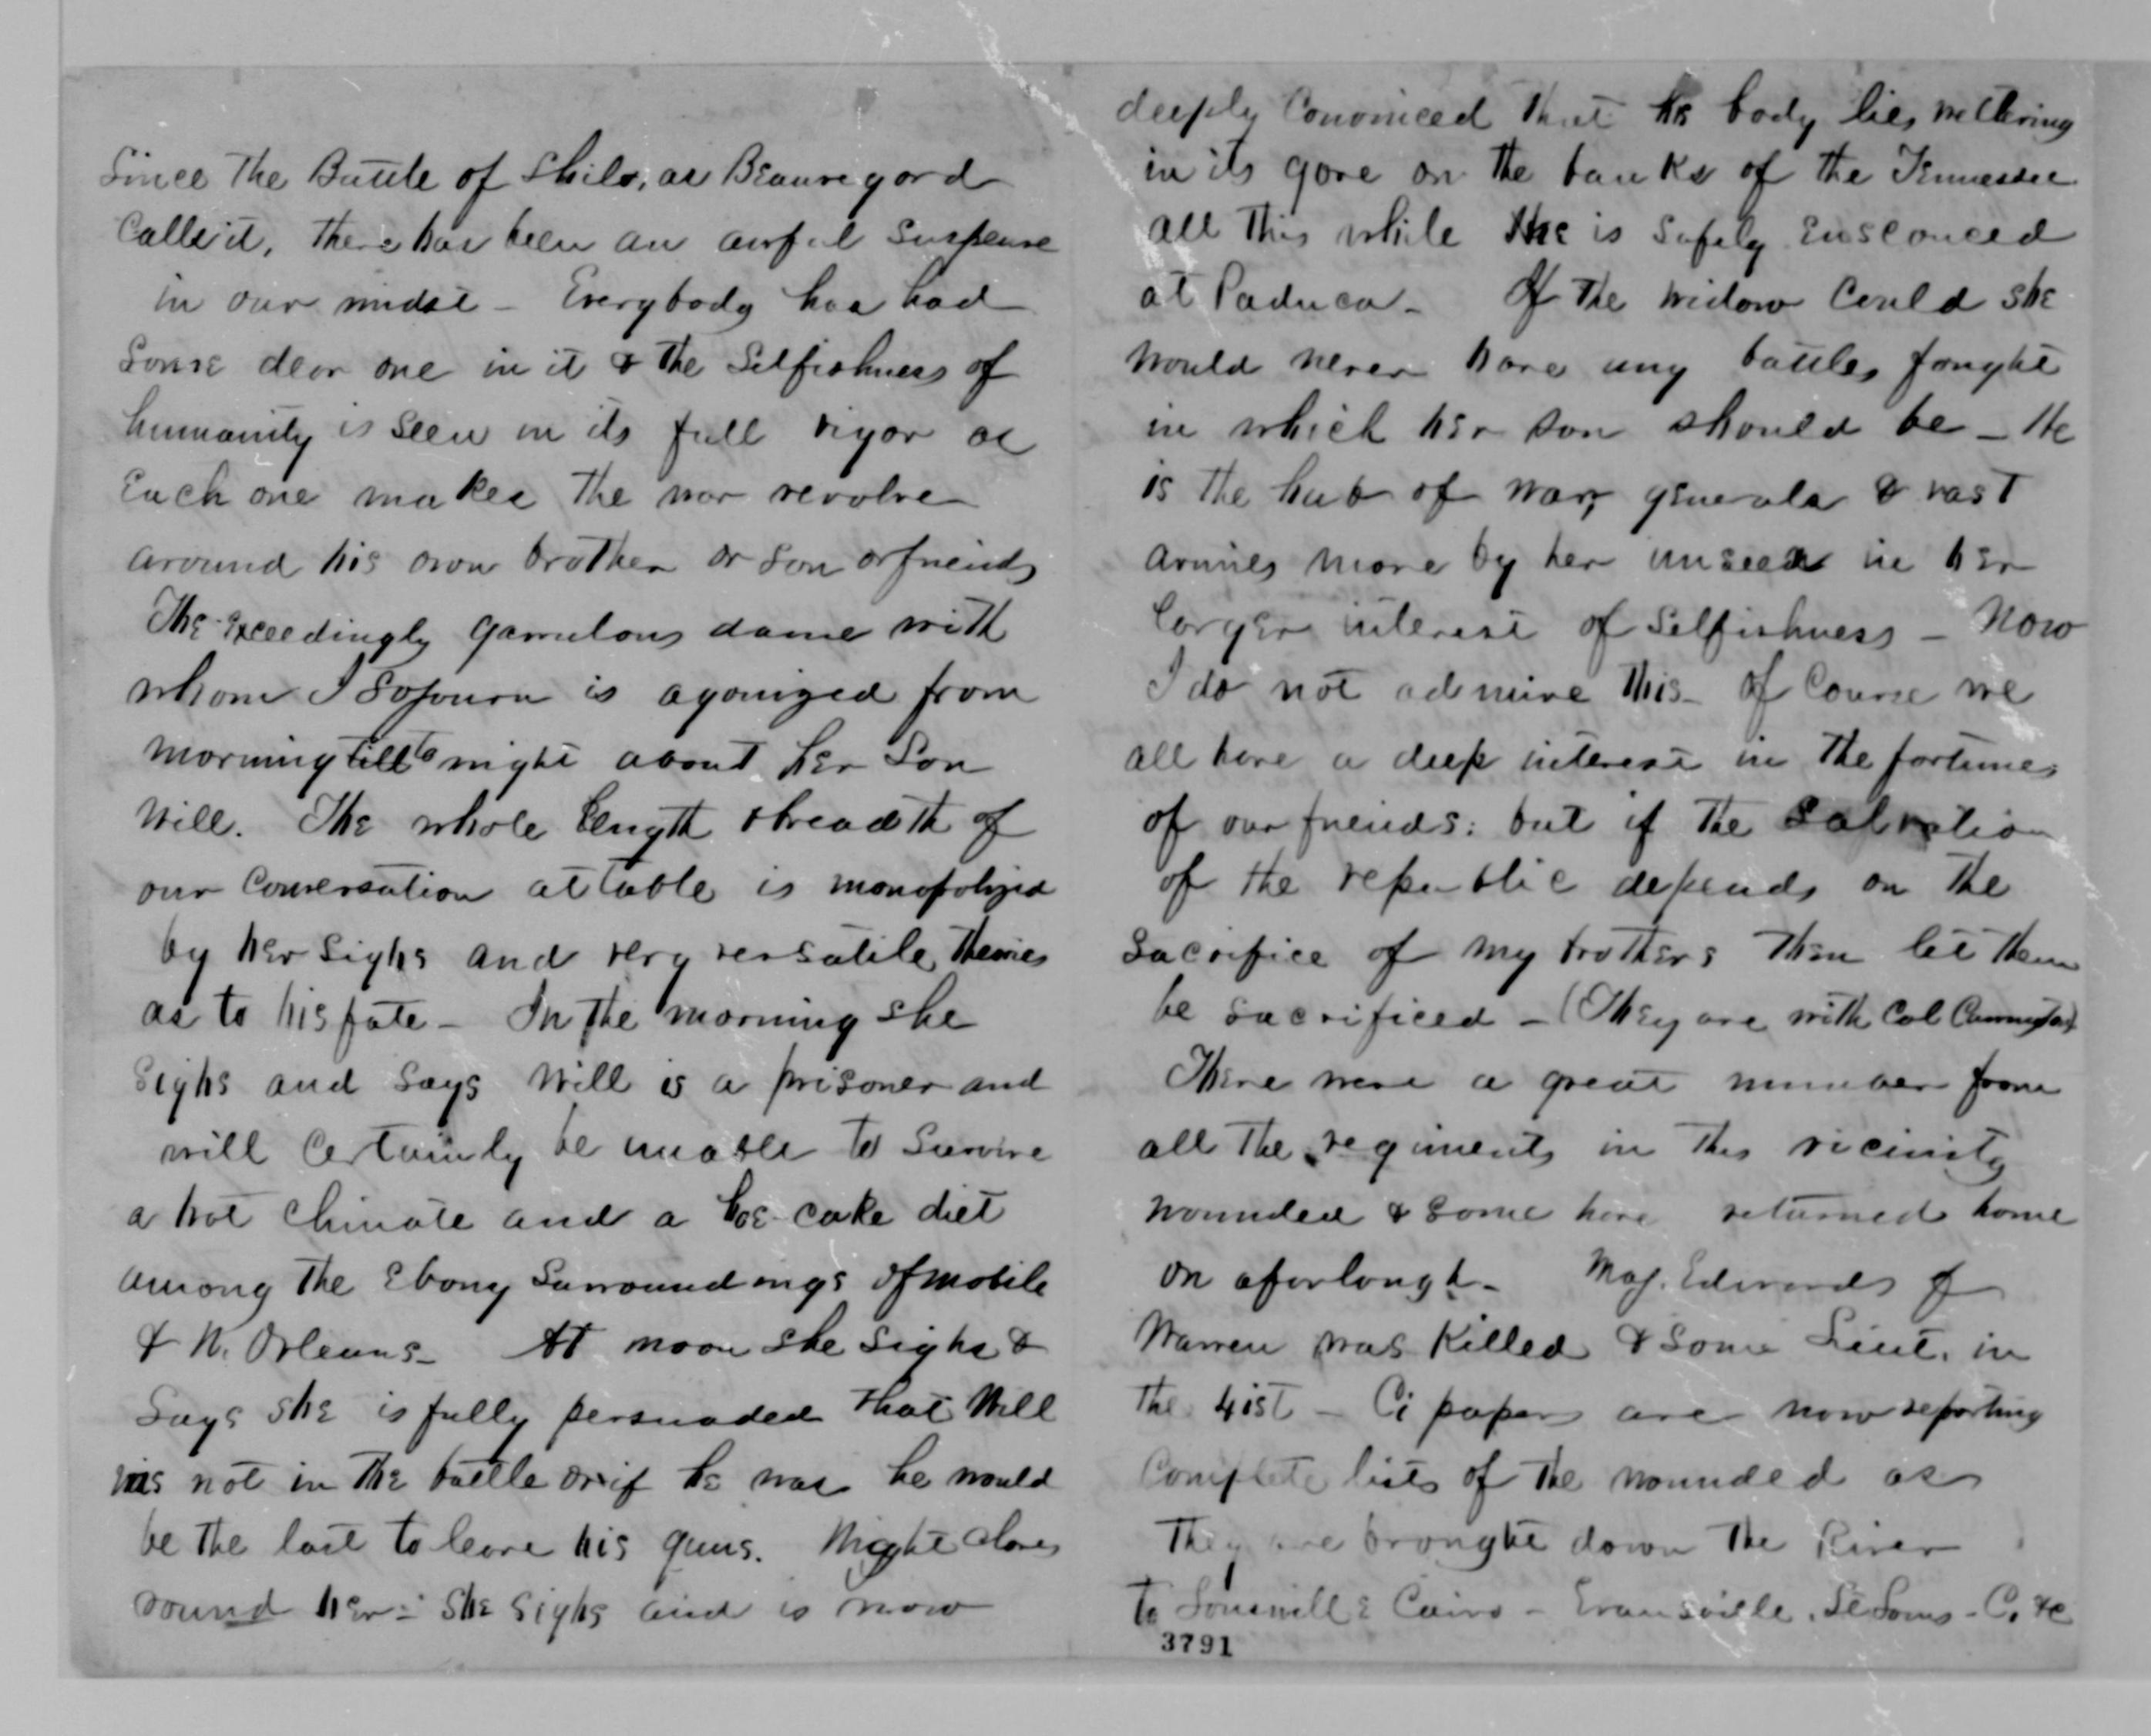 Since the Battle of Shilo, as Beauregard
calls it, there has been an awful suspense
in our midst - Everybody has had
some dear one in it & the selfishness of
humanity is seen in its full vigor as
each one makes the war revolve
around his own brother or son or friends
The exceedingly garrulous dame with
whom I sojourn is agonized from
morning till to night about her son
Will. The whole length & breadth of
our conversation at table is monopolized
by her sighs and very versatile theories
as to his fate - In the morning she
sighs and says Will is a prisoner and
will certainly be unable to survive
a hot climate and a hoe-cake diet
among the ebony surroundings of Mobile
& N. Orleans - At noon she sighs &
says she is fully persuaded that Will
was not in the battle or if he was he would
be the last to leave his guns. Night closes
round her: she sighs and is now
deeply convinced that his body lies weltering
in its gore on the banks of the Tennessee
all this while he is safely ensconced
at Paduca - If the widow could she
would never have any battles fought
in which her son should be - He
is the hub of war, generals & vast
armies move by her unseen in her
larger interest of selfishness - Now
I do not admire this - Of course we
all have a deep interest in the fortunes
of our friends: but if the salvation
of the republic depends on the
sacrifice of my brothers then let them
be sacrificed - (They are with Col
There were a great number from
all the regiments in this vicinity
wounded & some have returned home
on a forlough - Maj. Edwards of
Warren was killed & some Lieut. in
the 41st - Ci papers are now reporting
complete lists of the wounded as
they are brought down the River
to Louisville & Cairo - Evansville, St Louis - C. &c
3791